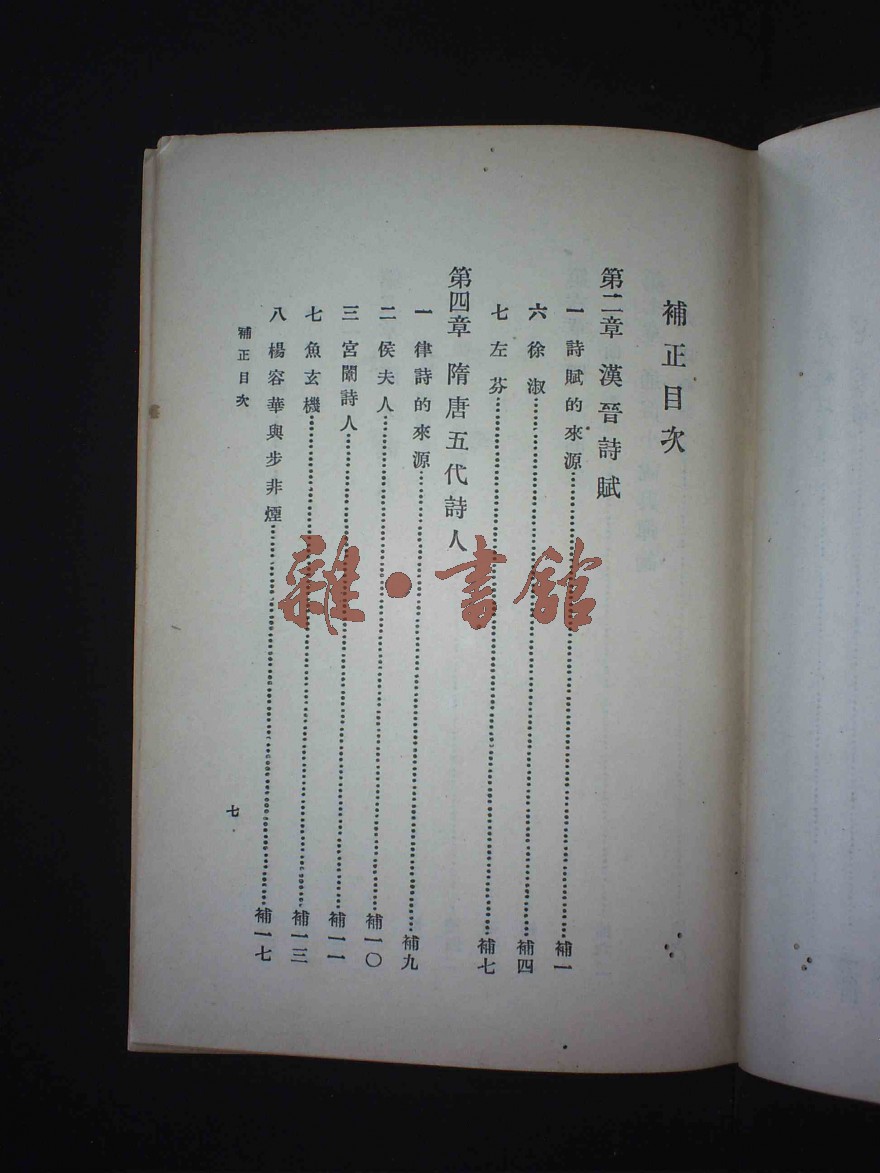 補正目次
第二章 漢晉詩賦
一 詩賦的來源……補一
六 徐淑……補四
七 左芬……補七
第四章 隋唐五代詩人
一 律詩的來源……補九
二 侯夫人……補一〇
三 宮闈詩人……補一一
七 魚玄機……補一三
八 楊容華與步非煙……補一七
補正目次
七
雜·書館